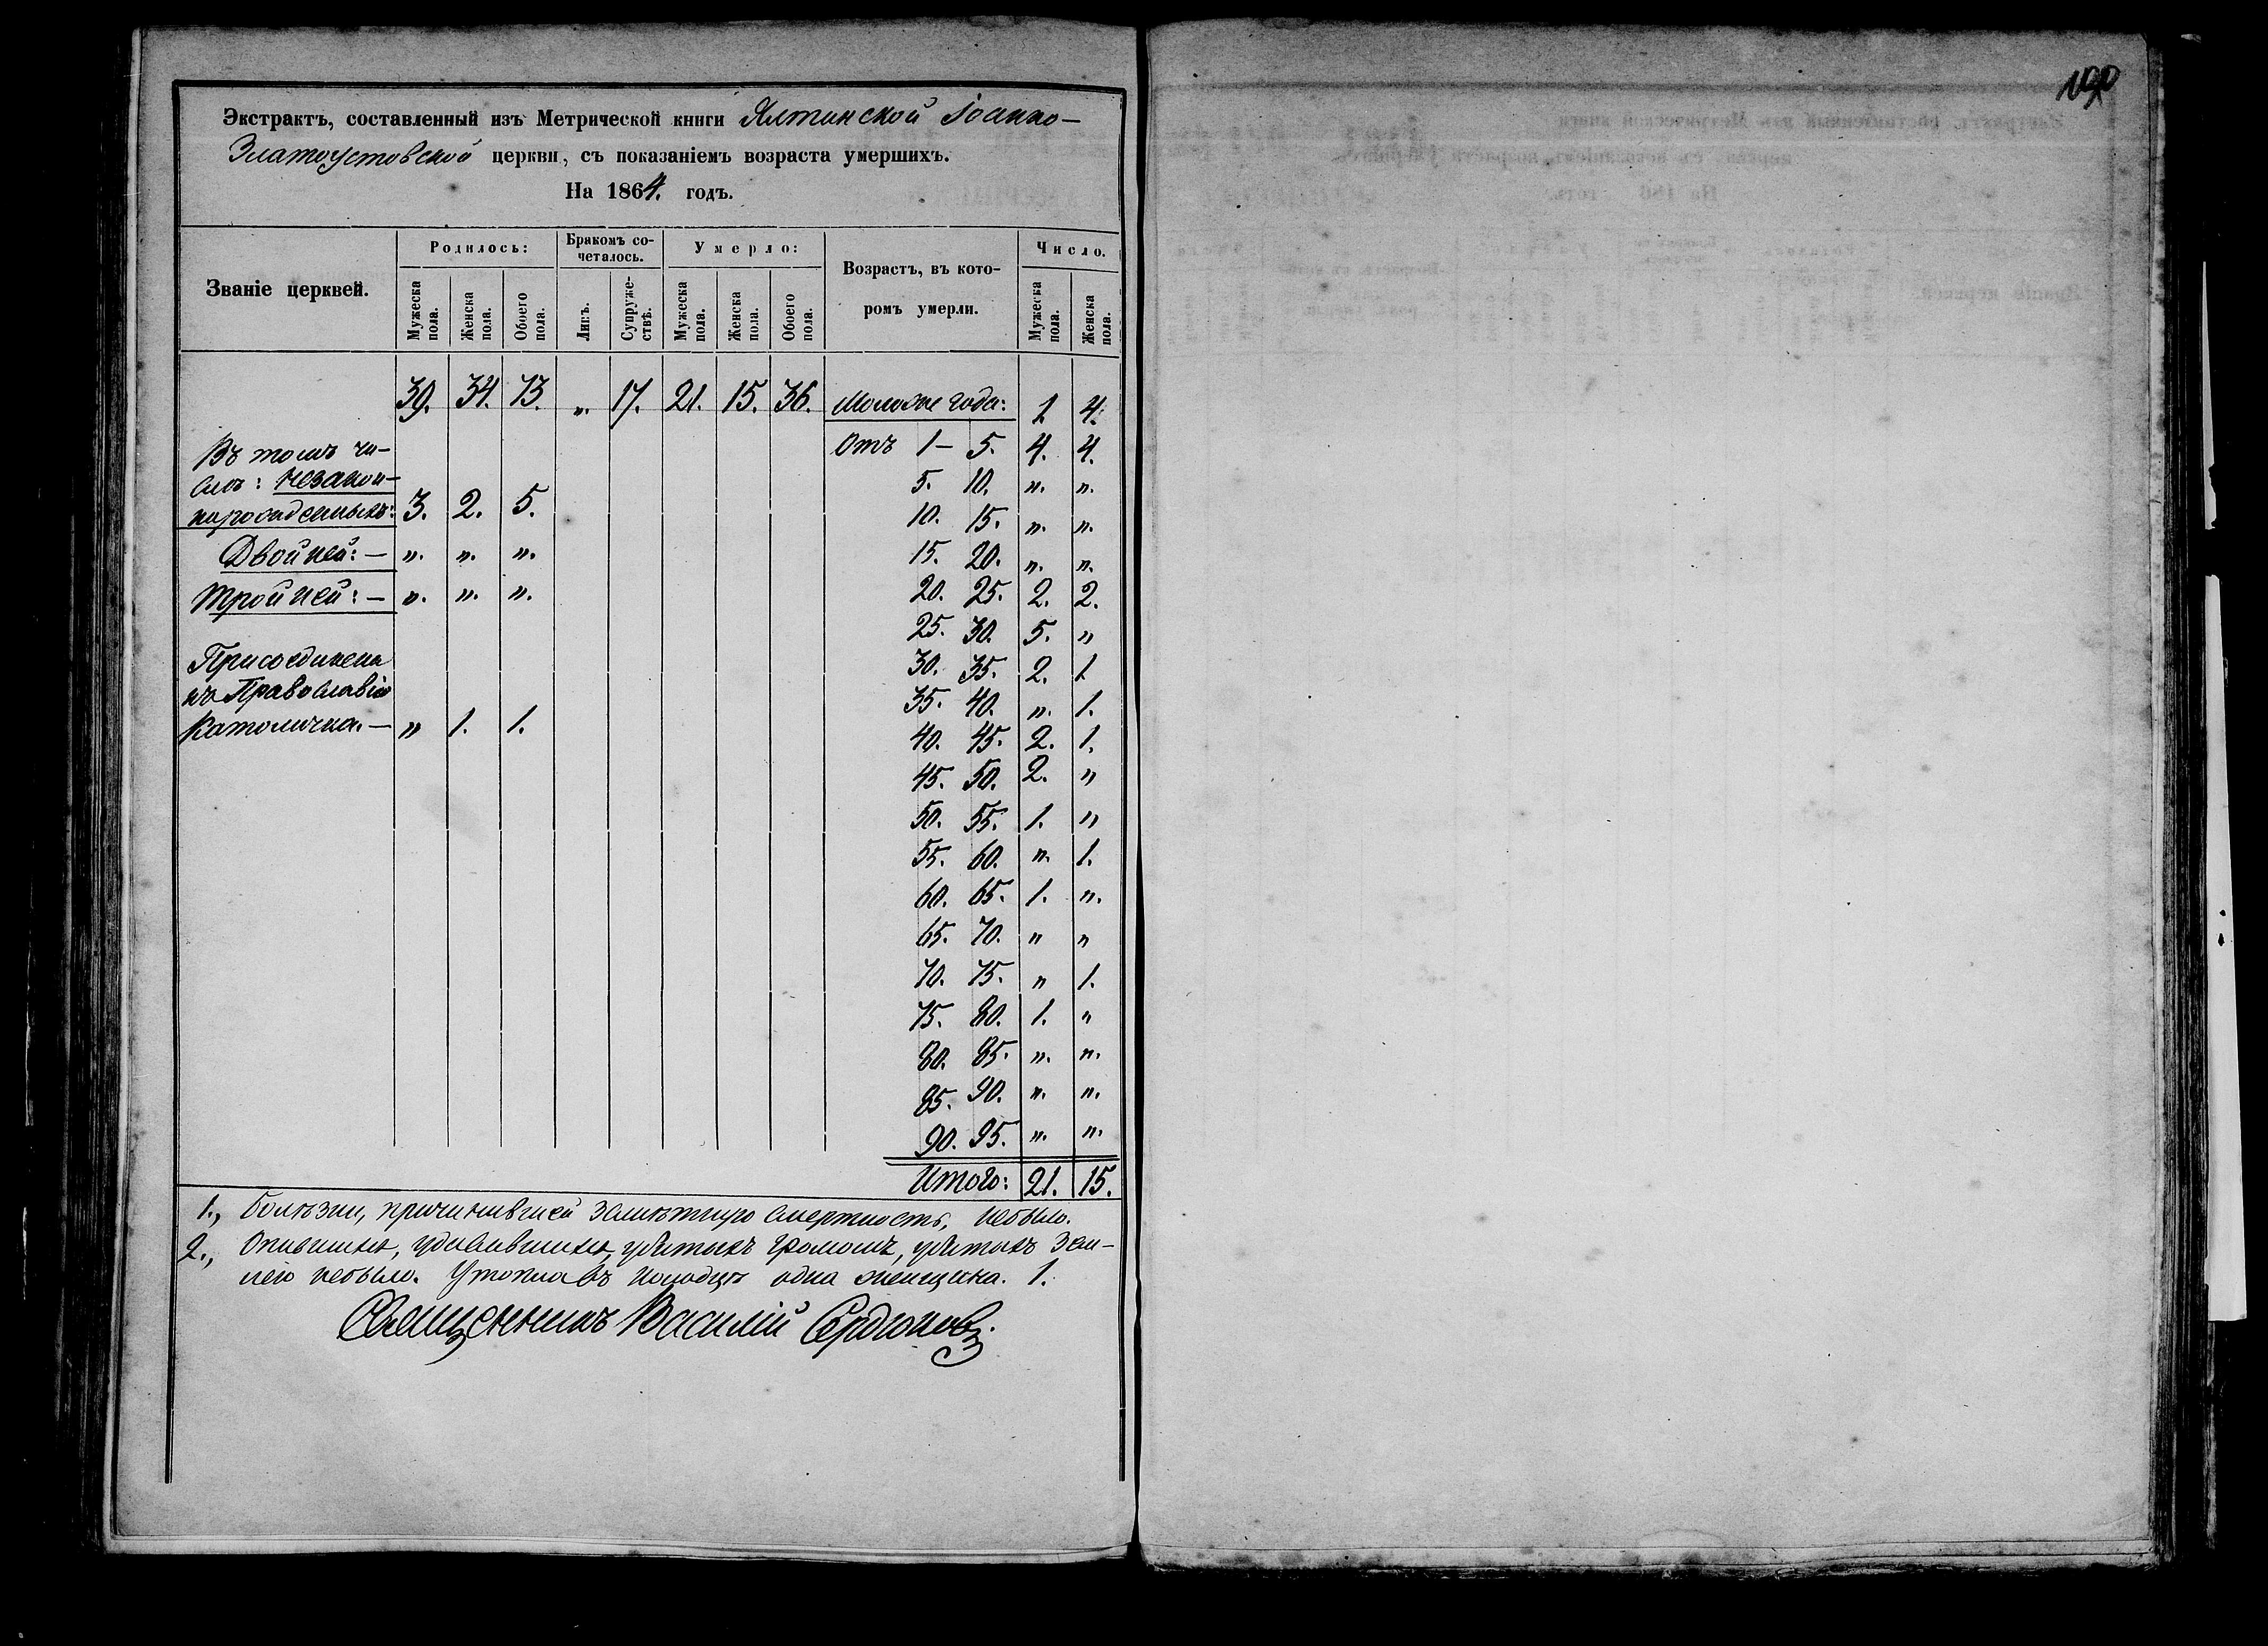 190
Экстрактъ, составленный изъ Метрической книги Ялтинской Іоанно-
Златоустовской церкви, съ показаніемъ возраста умершихъ.
На 1864. годъ.
Званіе церквей.
Родилось:
Бракомъ со-
четалось.
Умерло:
Возрастъ, въ кото-
ромъ умерли.
Число.
Мужеска пола.
Женска пола.
Обоего пола.
Лицъ.
Супруже-
ствъ.
Мужеска пола.
Женска пола.
Обоего пола.
Мужеска пола.
Женска пола.
39. 34. 73. „. 17. 21. 15. 36. Моложе года: 1 4.
Въ томъ чи-
слѣ: незакон-
норожденныхъ: 3. 2. 5.
Двойней: — „. „. „.
Тройней: — „. „. „.
Присоединена
къ Православію
Католичка. — „ 1. 1.
Отъ 1 — 5. 4. 4.
5. 10. „. „.
10. 15. „. „.
15. 20. „. „.
20. 25. 2. 2.
25. 30. 5. „
30. 35. 2. 1
35. 40. „. 1.
40. 45. 2. 1.
45. 50. 2. „
50. 55. 1. „
55. 60. „. 1.
60. 65. 1. „.
65. 70. „ „
70. 75. „ 1.
75. 80. 1. „
80. 85. „. „.
85. 90. „. „.
90. 95. „. „.
Итого: 21. 15.
1., Болѣзни, причинившей замѣтную смертность, небыло.
2., Опившихся, удавившихся, убитыхъ громомъ, убитыхъ зем-
лею небыло. Утопла въ колодцѣ одна женщина. 1.
Священникъ Василій Сердюковъ.